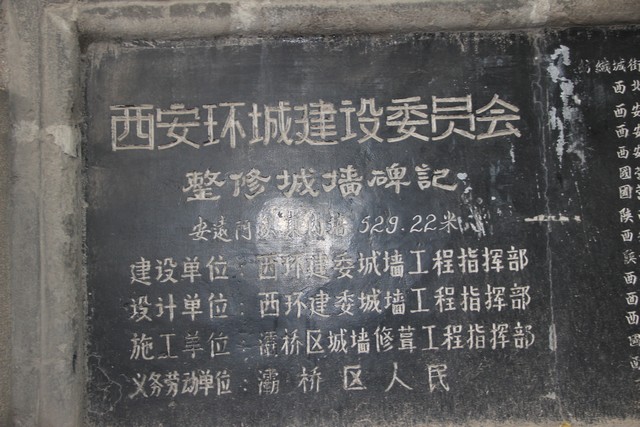 西安环城建设委员会
整修城墙碑記
安远门 529.22米
建设单位:西环建委城墙工程指挥部
设计单位:西环建委城墙工程指挥部
施工单位:灞桥区城墙修葺工程指挥部
义务劳动单位:灞桥区人民
城街
西北
西安
西安
西安
國
國
陕
西
陕
西
西
西
國